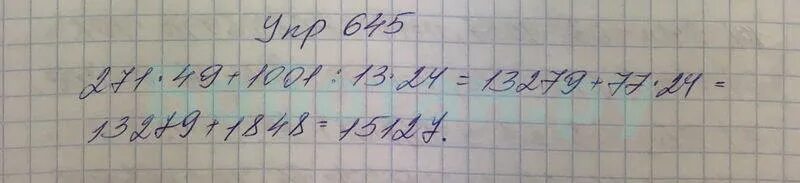 Упр 645
271·49+1001:13·24=13279+77·24=
13279+1848=15127.